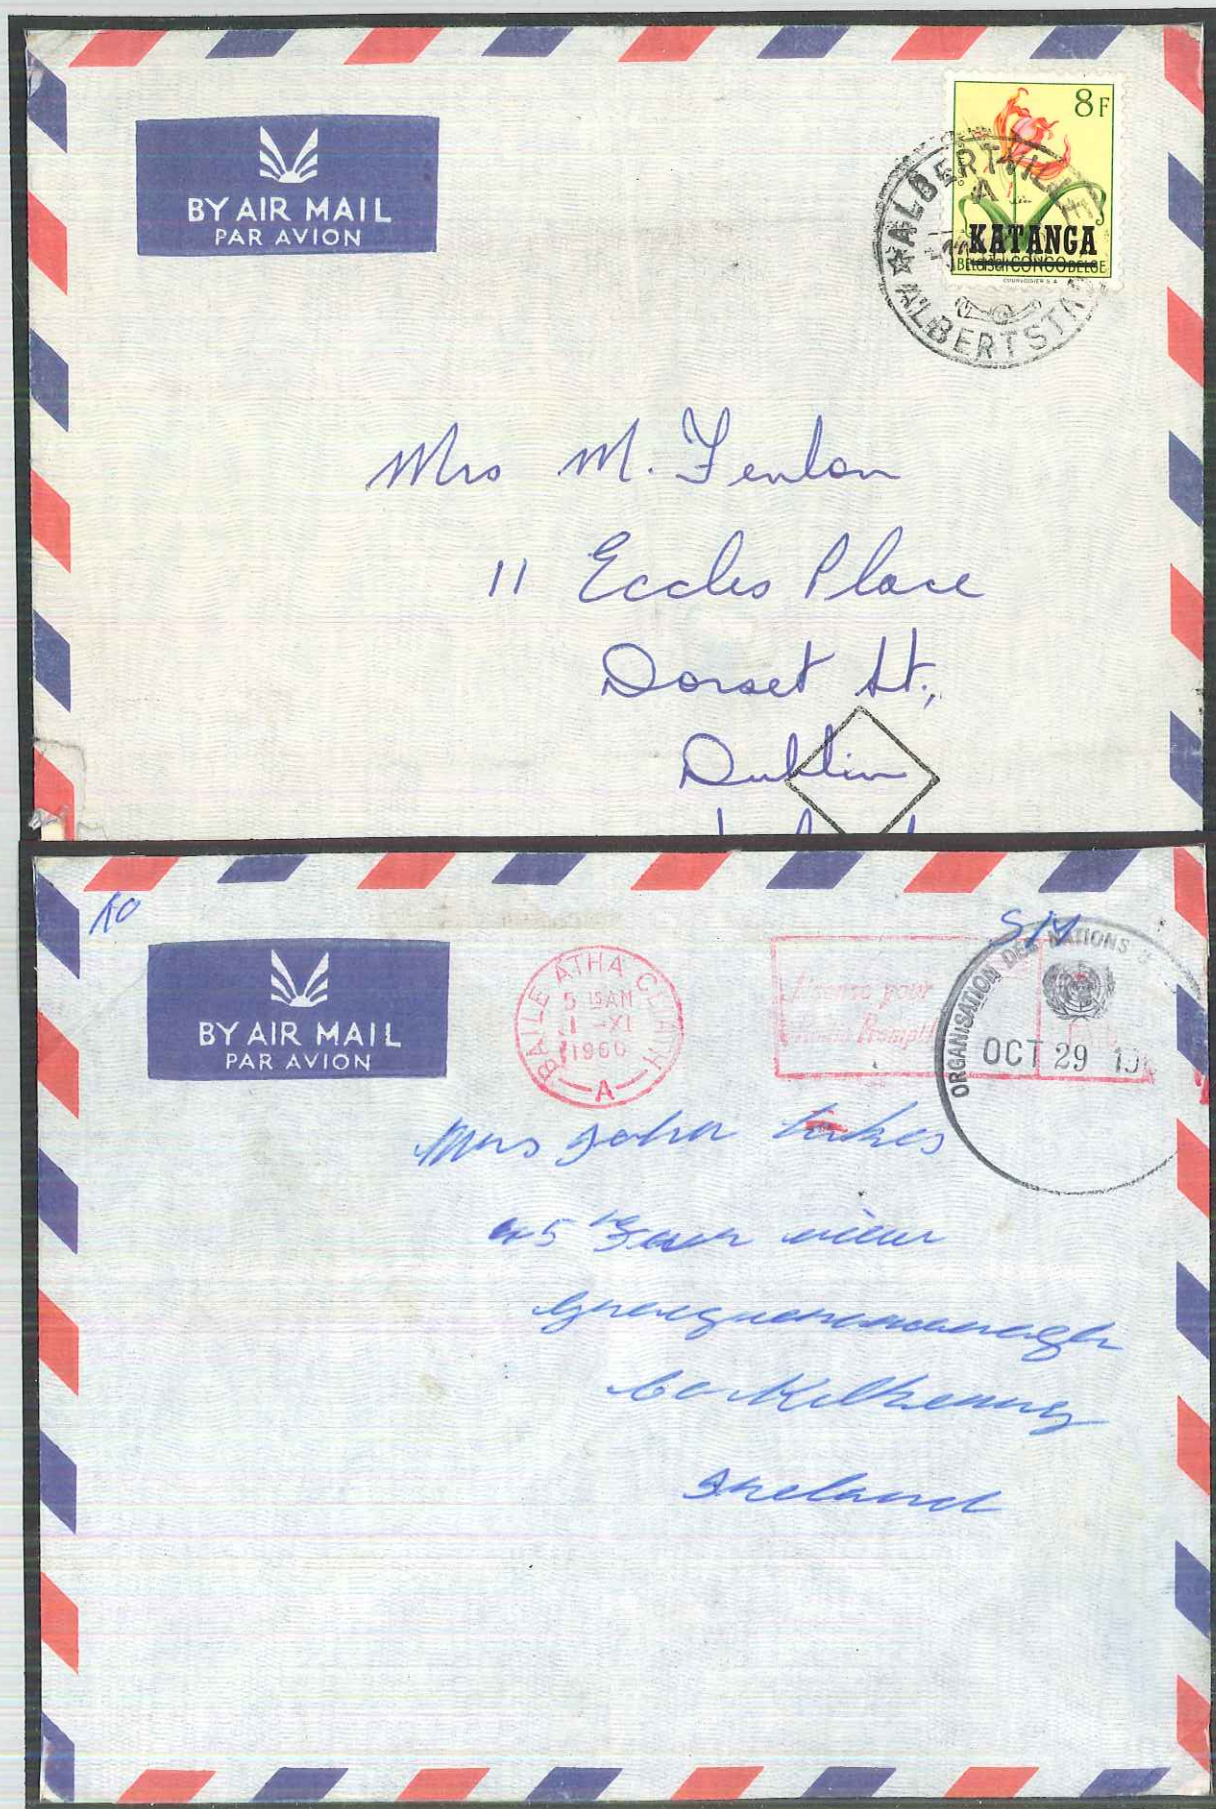 BY AIR MAIL
PAR AVION
8F
KATANGA
BELGISCH CONGO BELGE
COURVOISIER S.A.
ALBERTVILLE
A
ALBERTSTAD
Mrs M. Fenlon
11 Eccles Place
Dorset St.,
Dublin
BY AIR MAIL
PAR AVION
BAILE ATHA CLIATH
5 15AM
1 -XI
1960
A
your
ORGANISATION DES NATIONS U
OCT 29 19
Mrs John
view
Graiguenamanagh
Co Kilkenny
Ireland